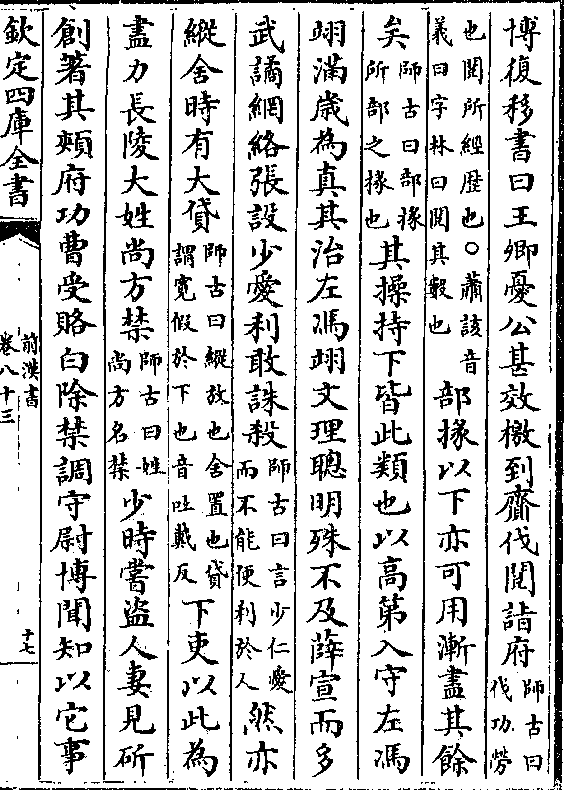 博復移書曰王卿憂公甚效檄到齎伐閱詣府師古曰伐功勞
也閱所經歴也○蕭該音義曰字林曰閱其數也部掾以下亦可用漸盡其餘
矣師古曰部掾所部之掾也其操持下皆此類也以高第入守左馮
翊滿歳為真其治左馮翊文理聰明殊不及薛宣而多
武譎網絡張設少愛利敢誅殺師古曰言少仁愛而不能便利於人然亦
縱舍時有大貸師古曰縱放也舍置也貸謂寛假於下也音吐戴反下吏以此為
盡力長陵大姓尚方禁師古曰姓尚方名禁少時嘗盜人妻見斫
創著其頰府功曹受賂白除禁調守尉博聞知以它事
欽定四庫全書
前漢書
卷八十三
十七